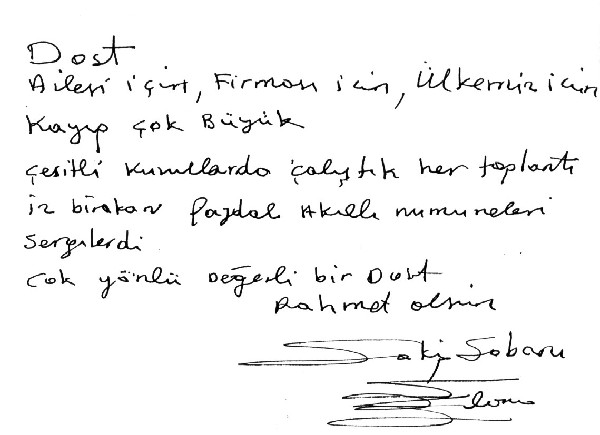 Dost
Ailesi için, Firması icin, Ülkemiz icin
Kayıp çok Büyük
çesitli kurullarda çalıştık her toplantı
iz birakan faydalı Akıllı numuneleri
sergilerdi
cok yönlü Değerli bir Dost
Rahmet olsun
Sakıp Sabancı